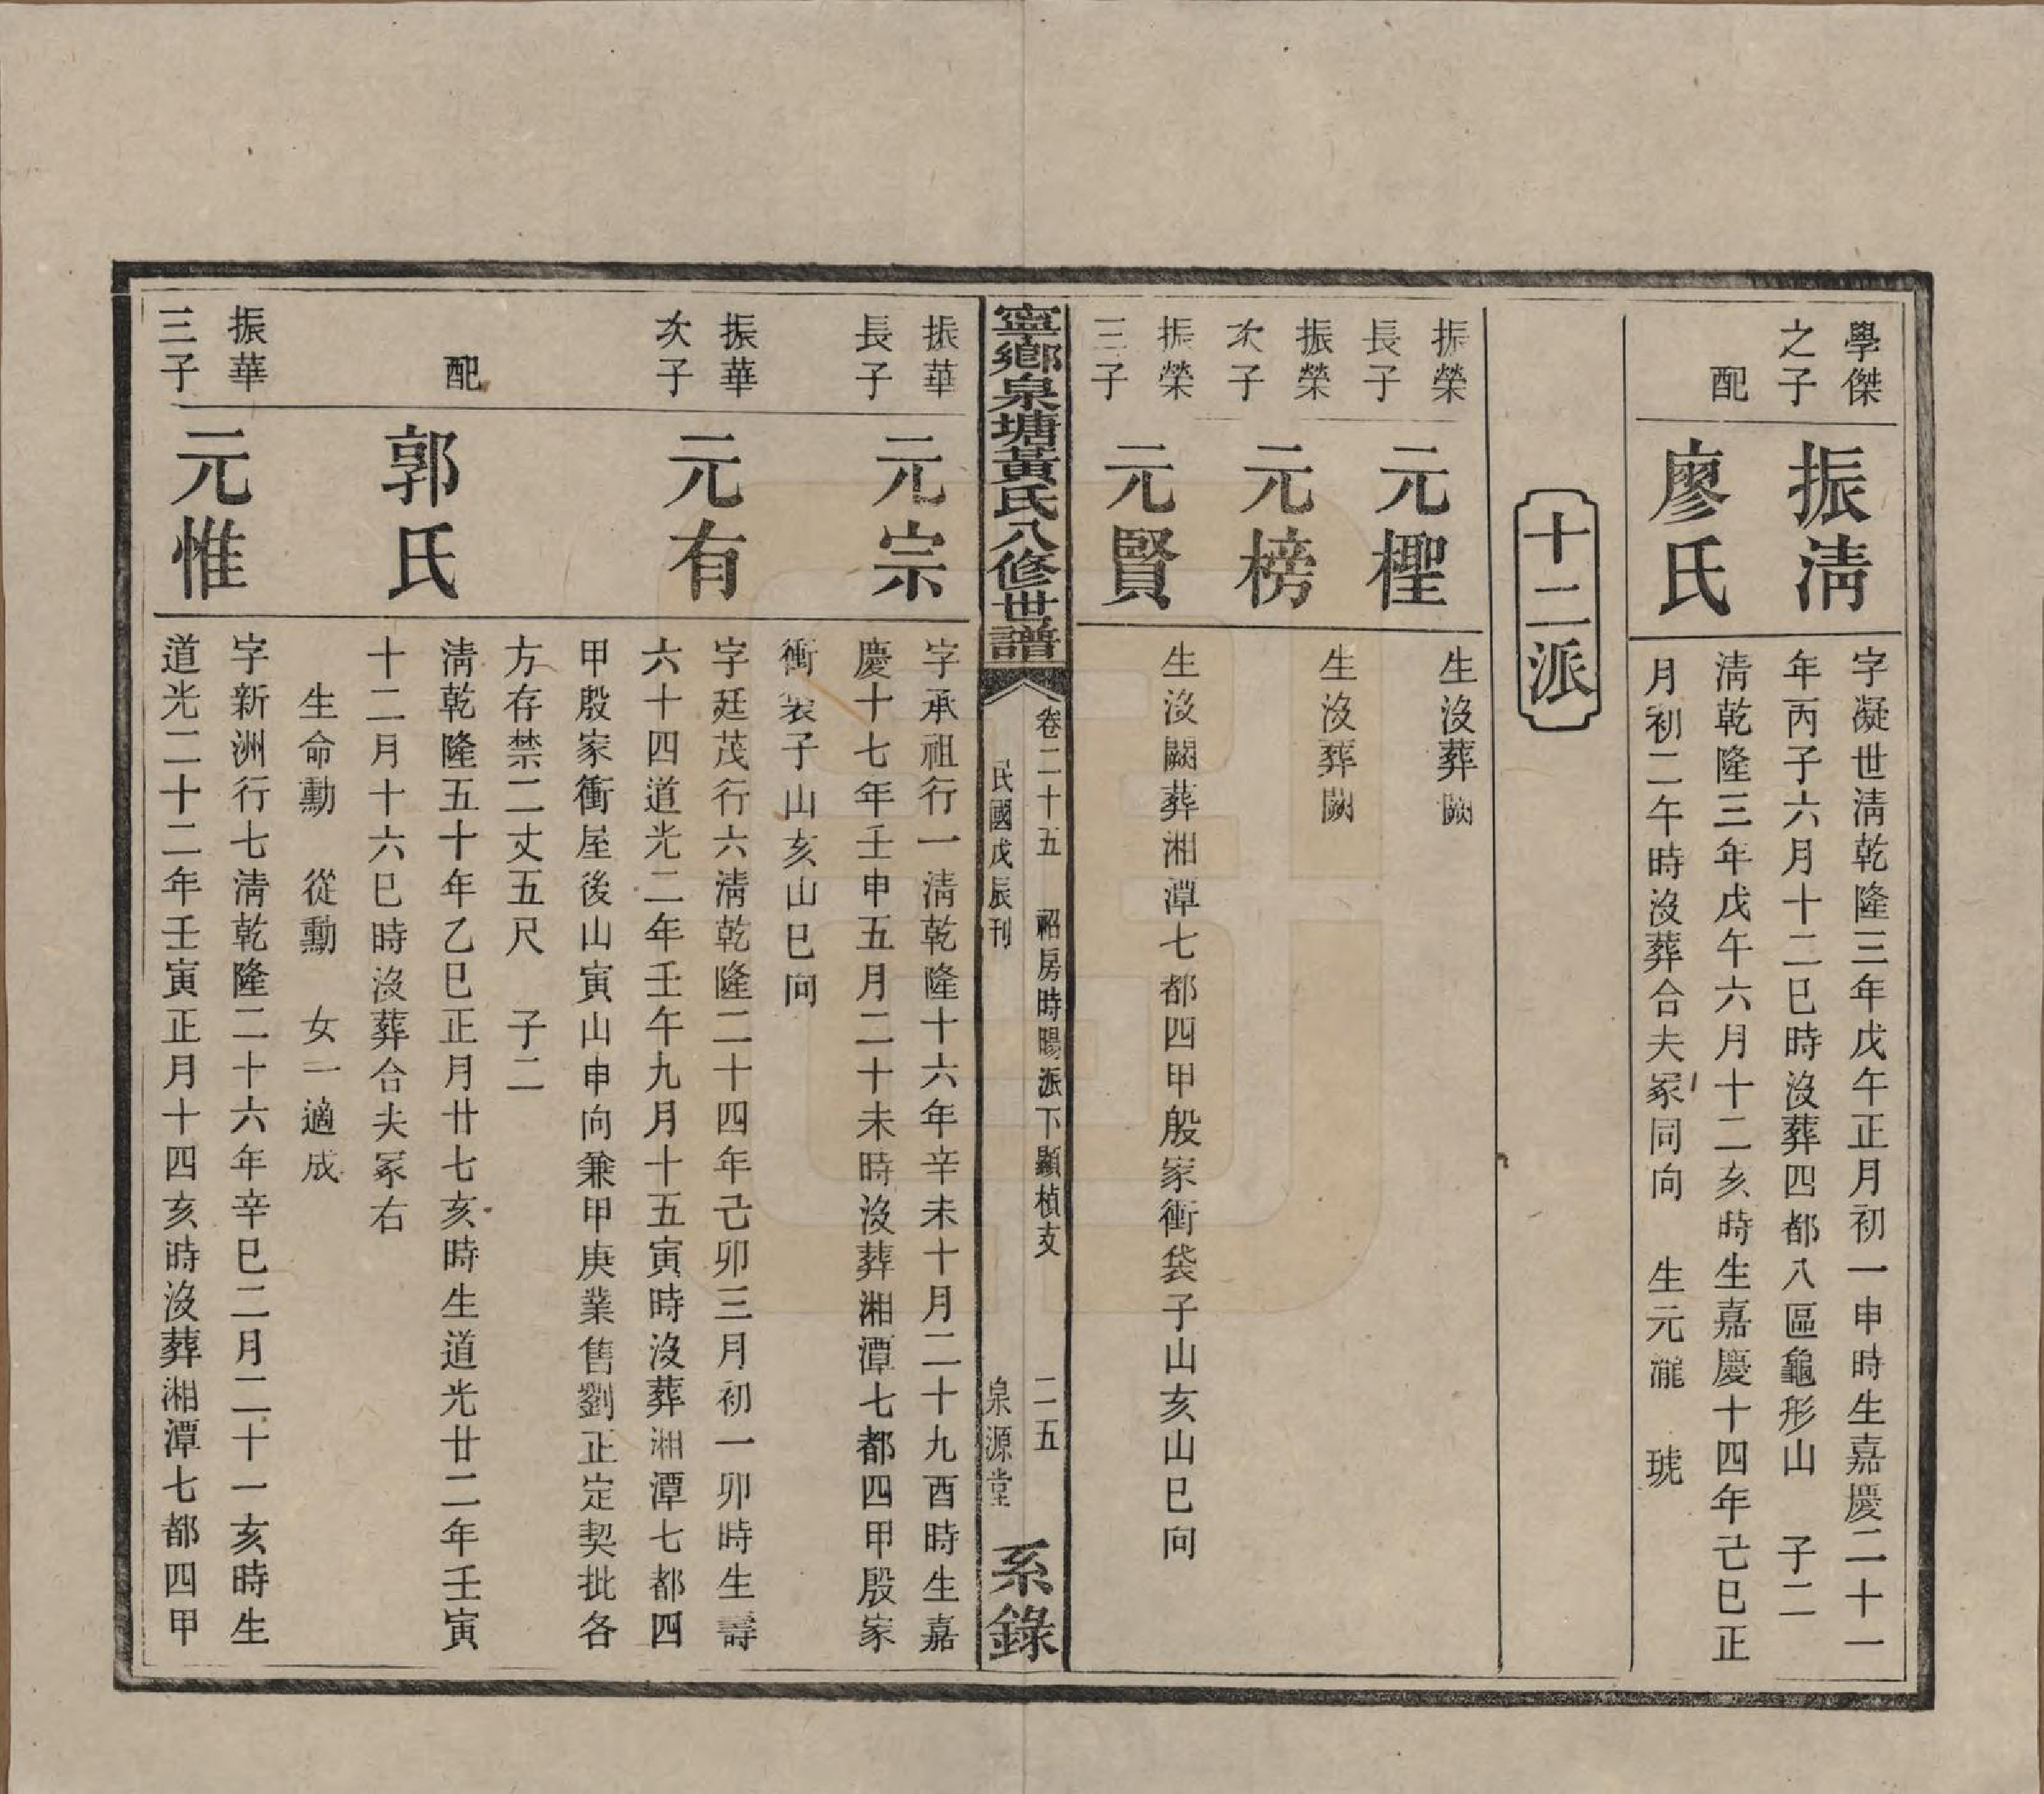 學傑
之子
振淸
字凝世淸乾隆三年戊午正月初一申時生嘉慶二十一
年丙子六月十二巳時沒葬四都八區龜形山　子二
配
廖氏
淸乾隆三年戊午六月十二亥時生嘉慶十四年己巳正
月初二午時沒葬合夫冢同向　生元瀧　琥
十二派
振榮
長子
元檉
生沒葬闕
振榮
次子
元榜
生沒葬闕
振榮
三子
元賢
生沒闕葬湘潭七都四甲殷家衝袋子山亥山巳向
寧鄉泉塘黃氏八修世譜
卷二十五　祒房時暘派下顯楨支　二五
民國戊辰刊　泉源堂
系錄
振華
長子
元宗
字承祖行一淸乾隆十六年辛未十月二十九酉時生嘉
慶十七年壬申五月二十未時沒葬湘潭七都四甲殷家
衝袋子山亥山巳向
振華
次子
元有
字廷茂行六淸乾隆二十四年己卯三月初一卯時生壽
六十四道光二年壬午九月十五寅時沒葬湘潭七都四
甲殷家衝屋後山寅山申向兼甲庚業售劉正定契批各
方存禁二丈五尺　子二
配
郭氏
淸乾隆五十年乙巳正月廿七亥時生道光廿二年壬寅
十二月十六巳時沒葬合夫冢右
生命勳　從勳　女一適成
振華
三子
元惟
字新洲行七淸乾隆二十六年辛巳二月二十一亥時生
道光二十二年壬寅正月十四亥時沒葬湘潭七都四甲